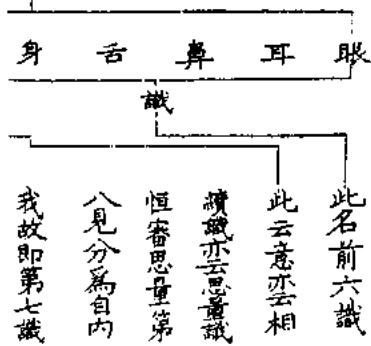 眼耳鼻舌身
識
此名前六識
此云意亦云相
續識亦云思量識
恒審思量第
八見分為自內
我故即第七識